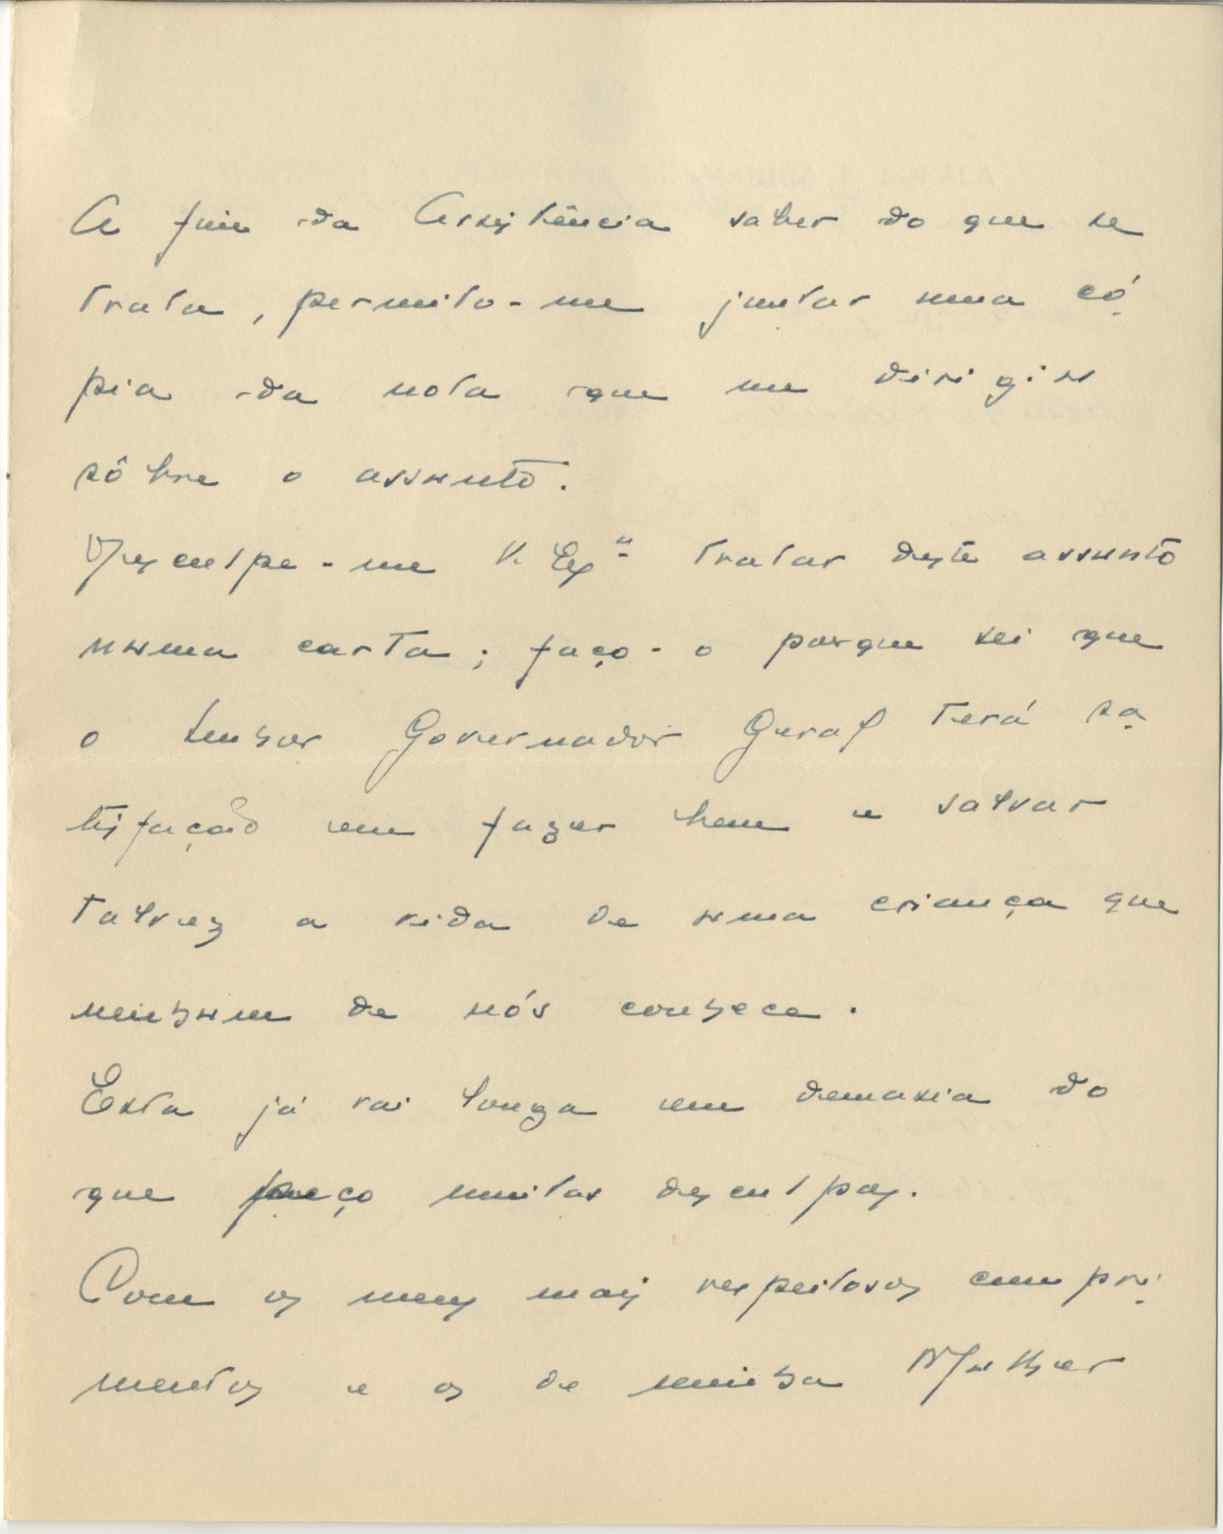 A fim da Assistência saber do que se
trata, permito-me juntar uma có-
pia da nota que me dirigiu
sôbre o assunto.
Desculpe-me V. Exª tratar deste assunto
numa carta; faço-o porque sei que
o Senhor Governador Geral terá sa-
tisfação em fazer bem e salvar
talvez a vida de uma criança que
nenhum de nós conhece.
Esta já vai longa em demasia do
que peço muitas desculpas.
Com os meus mais respeitosos cumpri-
mentos e os de minha Mulher